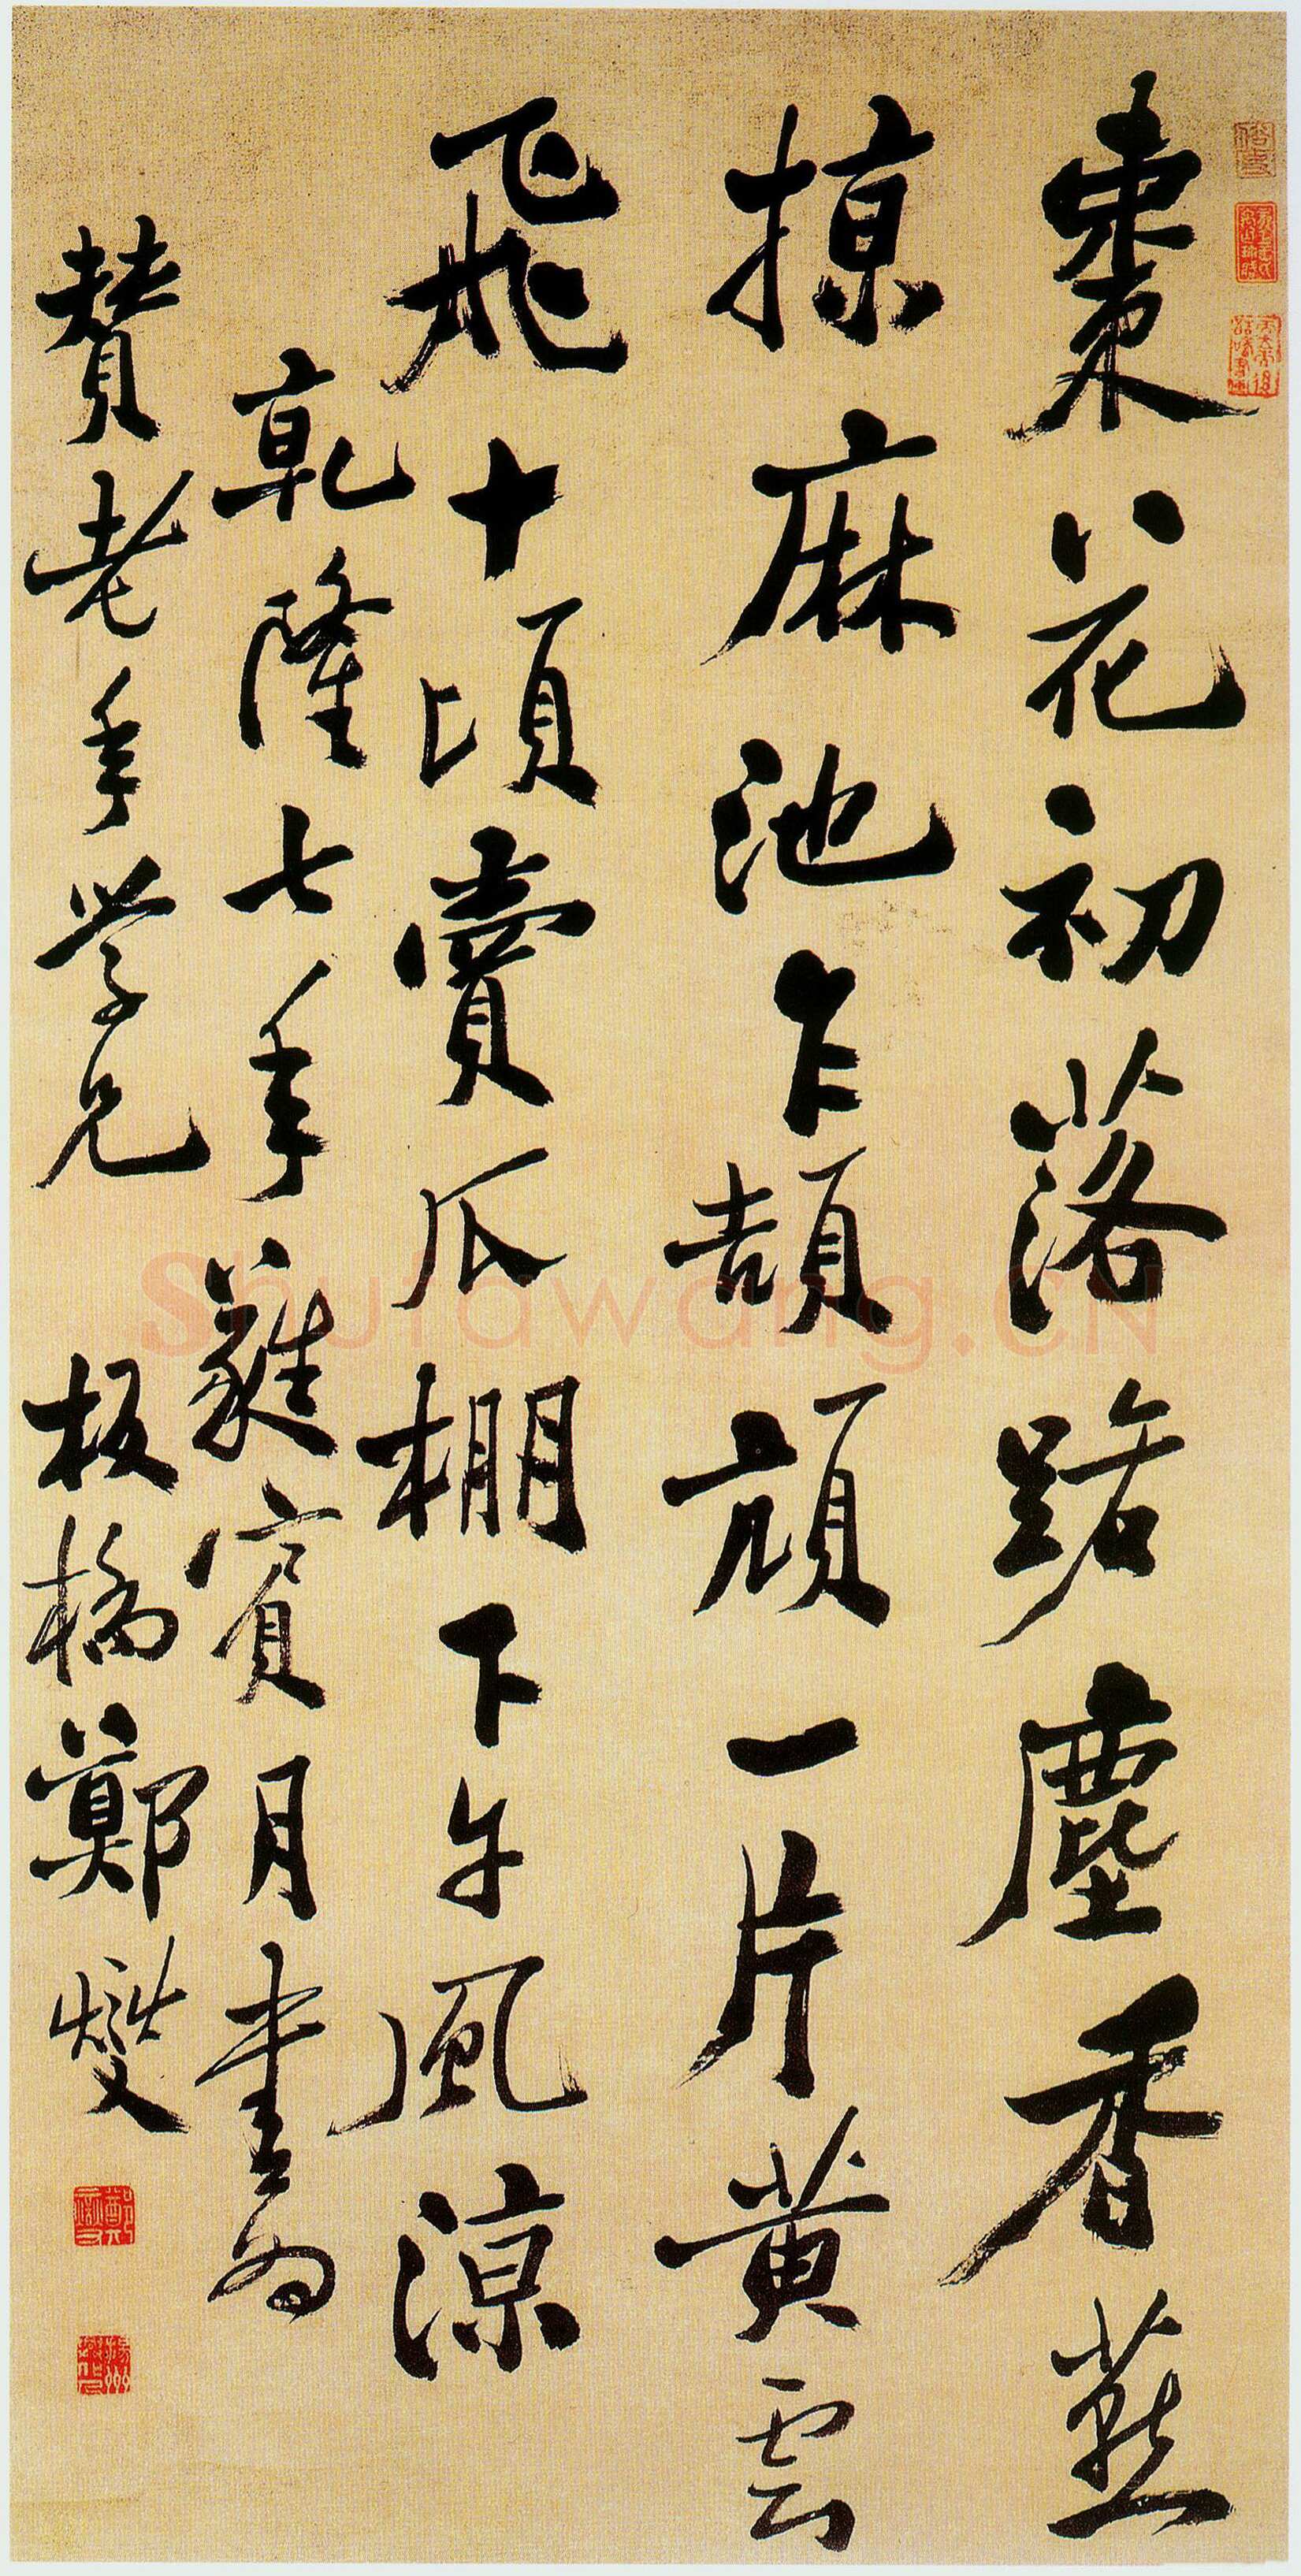 棗花初落路塵香燕
掠麻池乍頡頏一片黃雲
飛十頃賣瓜棚下午風涼
乾隆七年蕤賓月書為
贊老年學兄 板橋鄭燮
Shufawang.CN